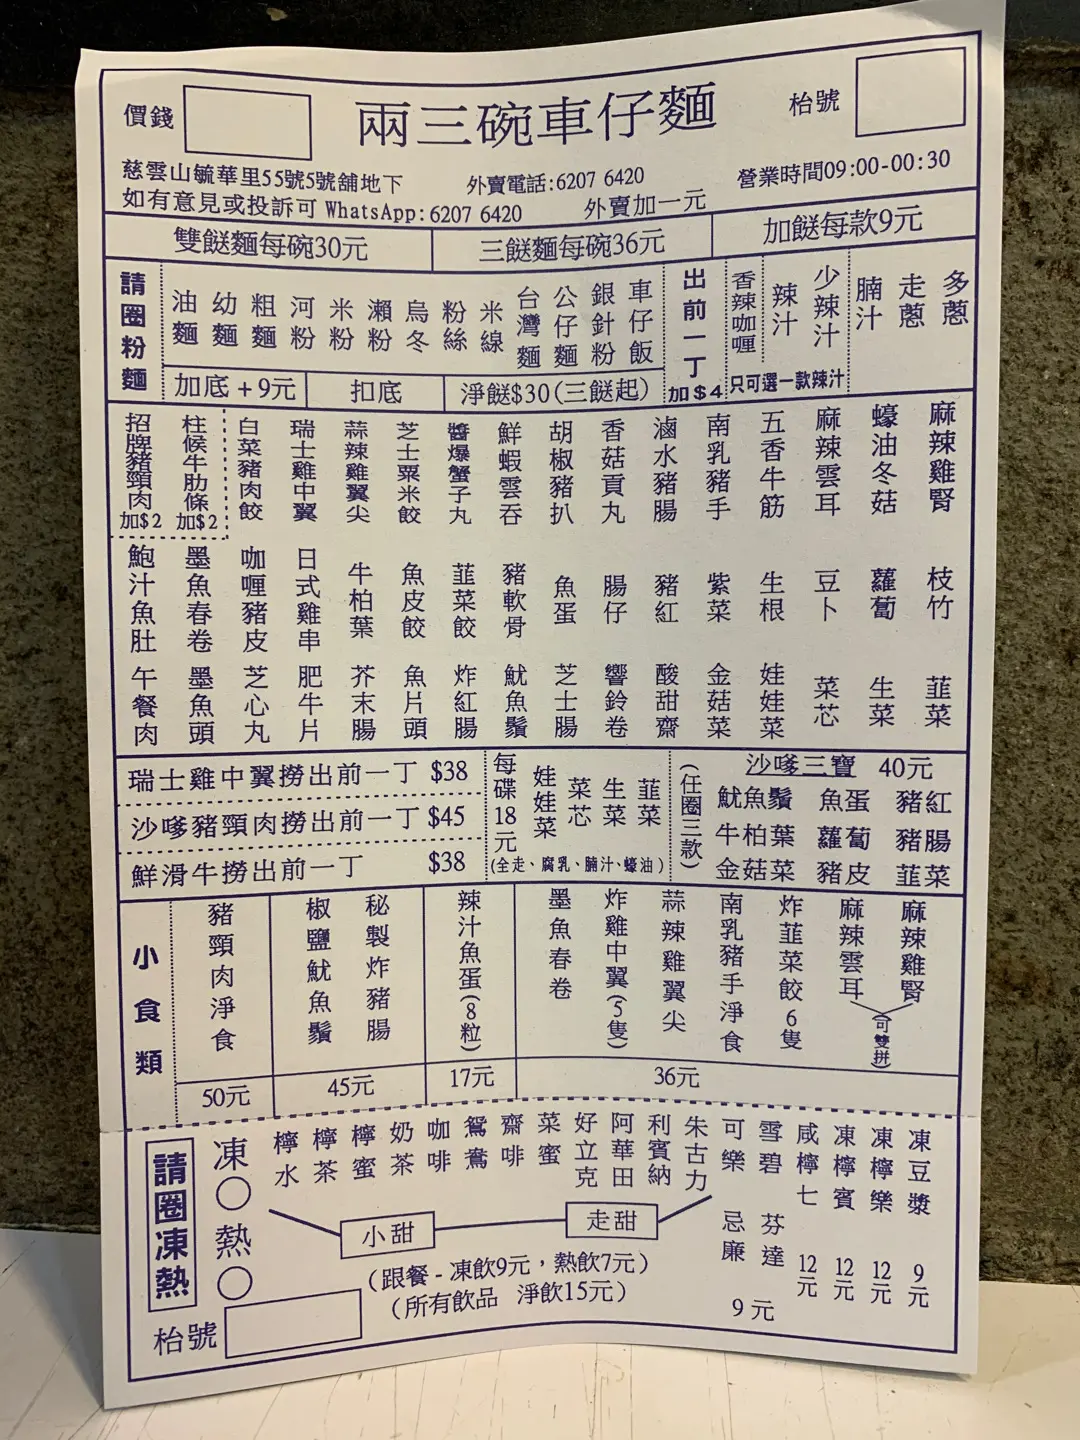 價錢
兩三碗車仔麵
枱號
慈雲山毓華里55號5號舖地下
外賣電話:6207 6420
營業時間09:00-00:30
如有意見或投訴可 WhatsApp: 6207 6420
外賣加一元
雙餸麵每碗30元
三餸麵每碗36元
加餸每款9元
請圈粉麵
油麵
幼麵
粗麵
河粉
米粉
瀨粉
烏冬
粉絲
米線
台灣麵
公仔麵
銀針粉
車仔飯
出前一丁
加$4
香辣咖喱
辣汁
少辣汁
只可選一款辣汁
腩汁
走蔥
多蔥
加底 + 9元
扣底
淨餸$30(三餸起)
招牌豬頸肉
加$2
柱侯牛肋條
加$2
白菜豬肉餃
瑞士雞中翼
蒜辣雞翼尖
芝士粟米餃
醬爆蟹子丸
鮮蝦雲吞
胡椒豬扒
香菇貢丸
滷水豬腸
南乳豬手
五香牛筋
麻辣雲耳
蠔油冬菇
麻辣雞腎
鮑汁魚肚
墨魚春卷
咖喱豬皮
日式雞串
牛柏葉
魚皮餃
韮菜餃
豬軟骨
魚蛋
腸仔
豬紅
紫菜
生根
豆卜
蘿蔔
枝竹
午餐肉
墨魚頭
芝心丸
肥牛片
芥末腸
魚片頭
炸紅腸
魷魚鬚
芝士腸
響鈴卷
酸甜齋
金菇菜
娃娃菜
菜芯
生菜
韮菜
瑞士雞中翼撈出前一丁 $38
沙嗲豬頸肉撈出前一丁 $45
鮮滑牛撈出前一丁 $38
每碟18元
娃娃菜
菜芯
生菜
韮菜
(全走、腐乳、腩汁、蠔油)
(任圈三款)
沙嗲三寶 40元
魷魚鬚 魚蛋 豬紅
牛柏葉 蘿蔔 豬腸
金菇菜 豬皮 韮菜
小食類
豬頸肉淨食
50元
椒鹽魷魚鬚
秘製炸豬腸
45元
辣汁魚蛋(8粒)
17元
墨魚春卷
炸雞中翼(5隻)
蒜辣雞翼尖
南乳豬手淨食
炸韮菜餃6隻
麻辣雲耳
麻辣雞腎
(可雙拼)
36元
請圈凍熱
凍
熱
檸水
檸茶
檸蜜
奶茶
咖啡
鴛鴦
齋啡
菜蜜
好立克
阿華田
利賓納
朱古力
可樂
雪碧
忌廉
芬達
9元
咸檸七
12元
凍檸賓
12元
凍檸樂
12元
凍豆漿
9元
小甜
走甜
(跟餐 - 凍飲9元，熱飲7元)
(所有飲品 淨飲15元)
枱號